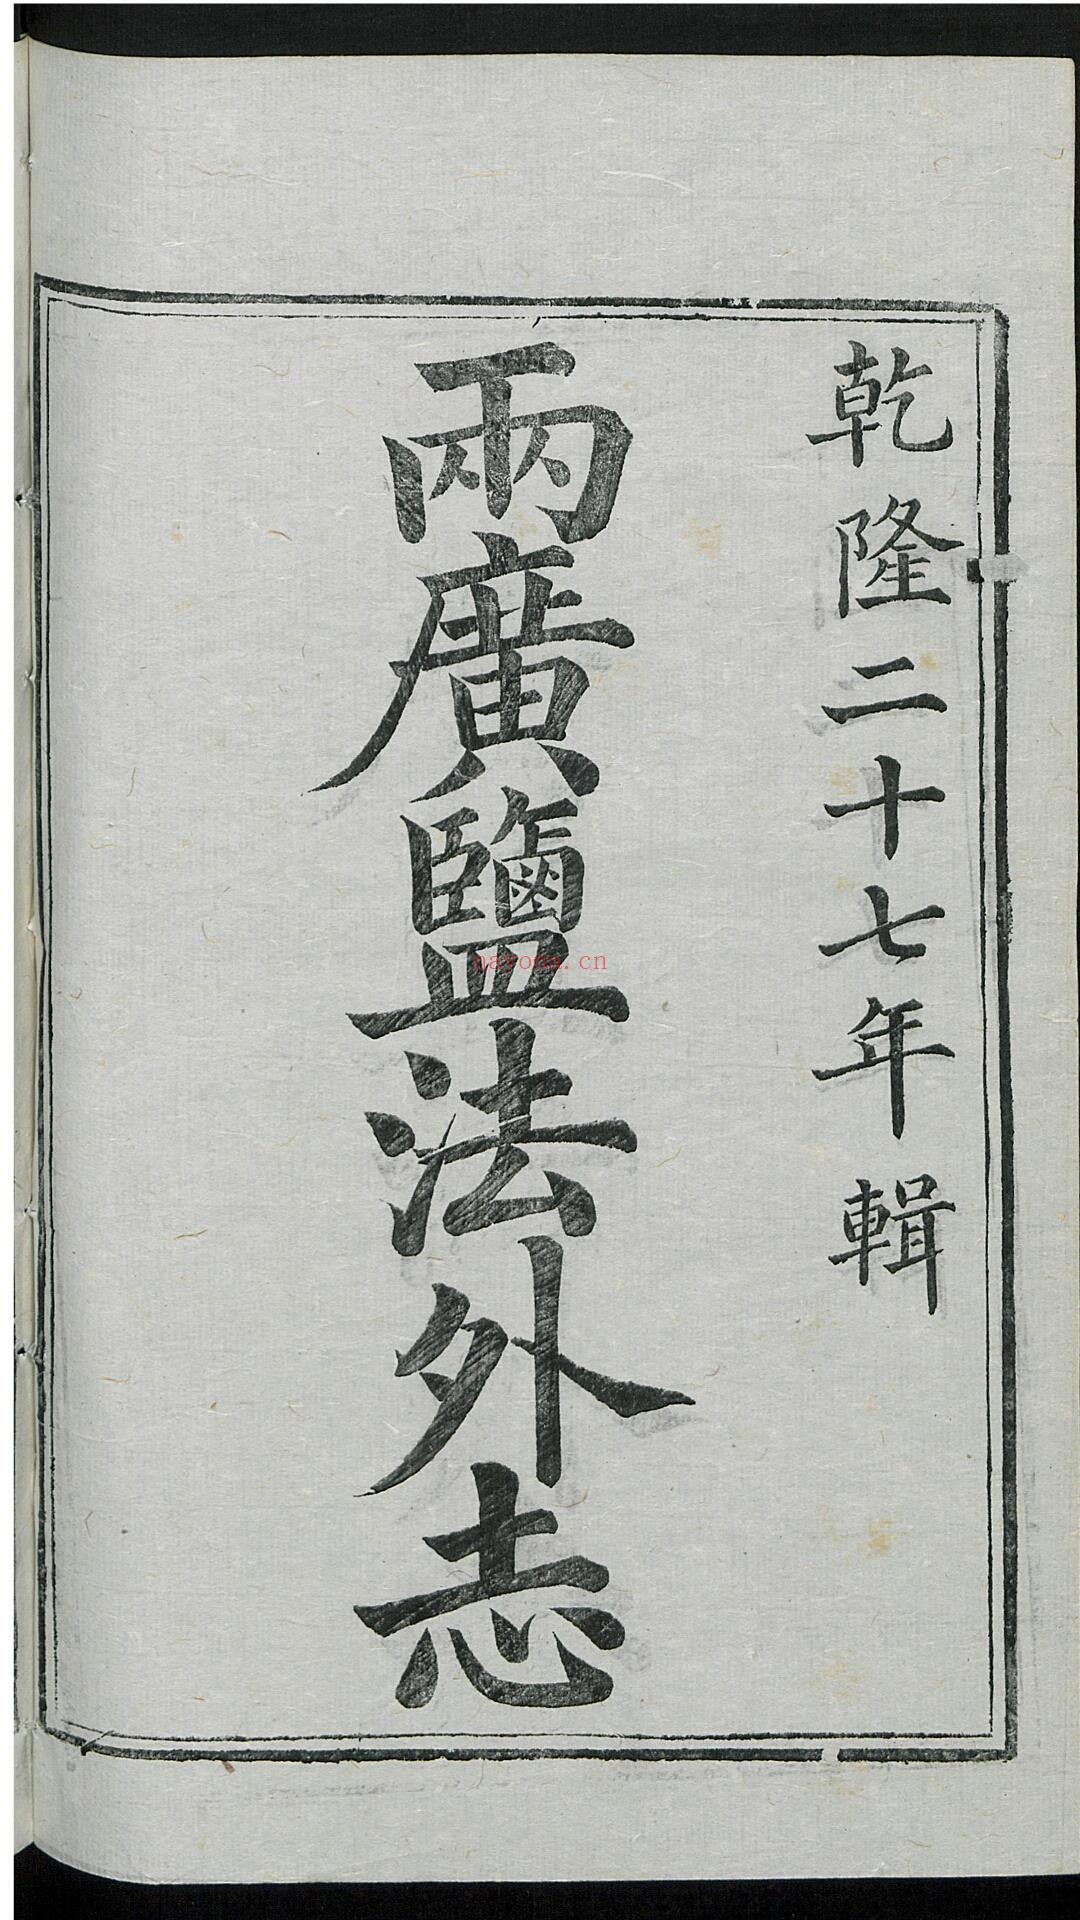 乾隆二十七年輯
兩廣鹽法外志
nayona.cn